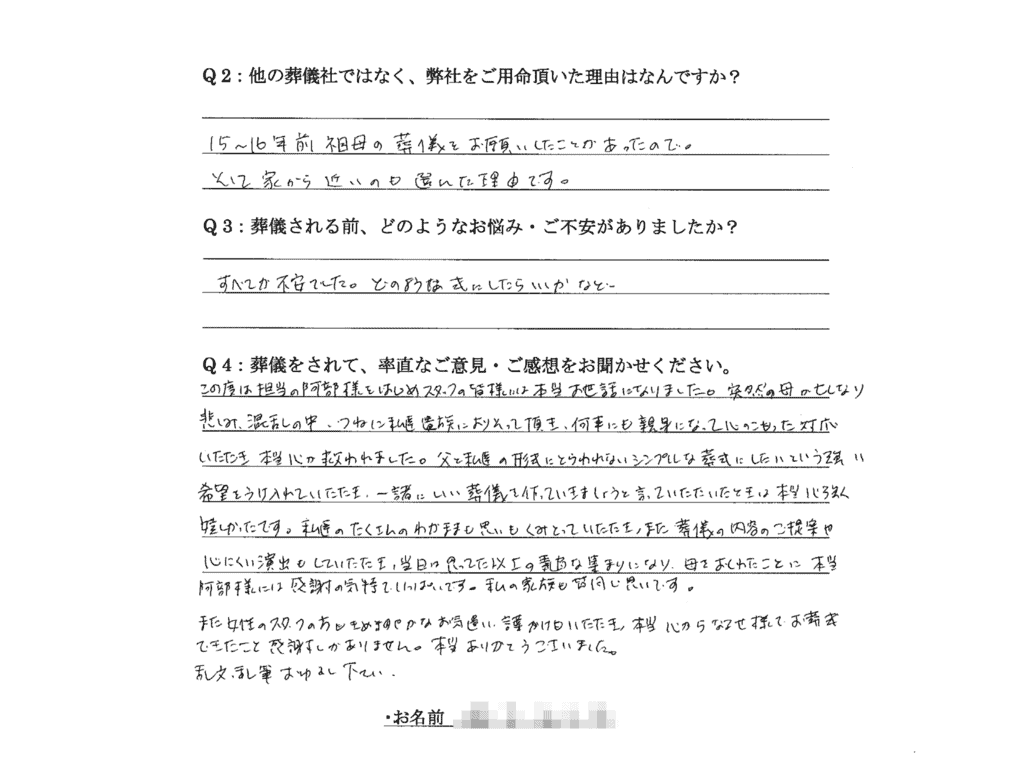 Q2：他の葬儀社ではなく、弊社をご用命頂いた理由はなんですか？
15～16年前 祖母の葬儀をお願いしたことがあったので。
そして家から近いのも選んだ理由です。
Q3：葬儀される前、どのようなお悩み・ご不安がありましたか？
すべてが不安でした。どのような式にしたらいいかなど…
Q4：葬儀をされて、率直なご意見・ご感想をお聞かせください。
この度は担当の阿部様をはじめスタッフの皆様には本当お世話になりました。突然の母が亡くなり
悲しみ、混乱の中、つねに私達遺族によりそって頂き、何事にも親身になって心のこもった対応
いただき 本当心が救われました。父と私達の形式にとらわれないシンプルな葬式にしたいという強い
希望をうけ入れていただき、一緒にいい葬儀を作っていきましょうと言っていただいたときは本当心強く
嬉しかったです。私達のたくさんのわがままも思いもくみとっていただき、また葬儀の内容のご提案や
心にくい演出もしていただき、当日は思ってた以上の素敵な集まりになり、母をおくれたことに本当
阿部様には感謝の気持でいっぱいです。私の家族も皆同じ思いです。
また女性のスタッフの方もきめ細やかなお気遣い、声かけもいただき、本当心からなるせ様でお葬式
できたこと感謝しかありません。本当ありがとうございました。
乱文、乱筆おゆるし下さい．
・お名前